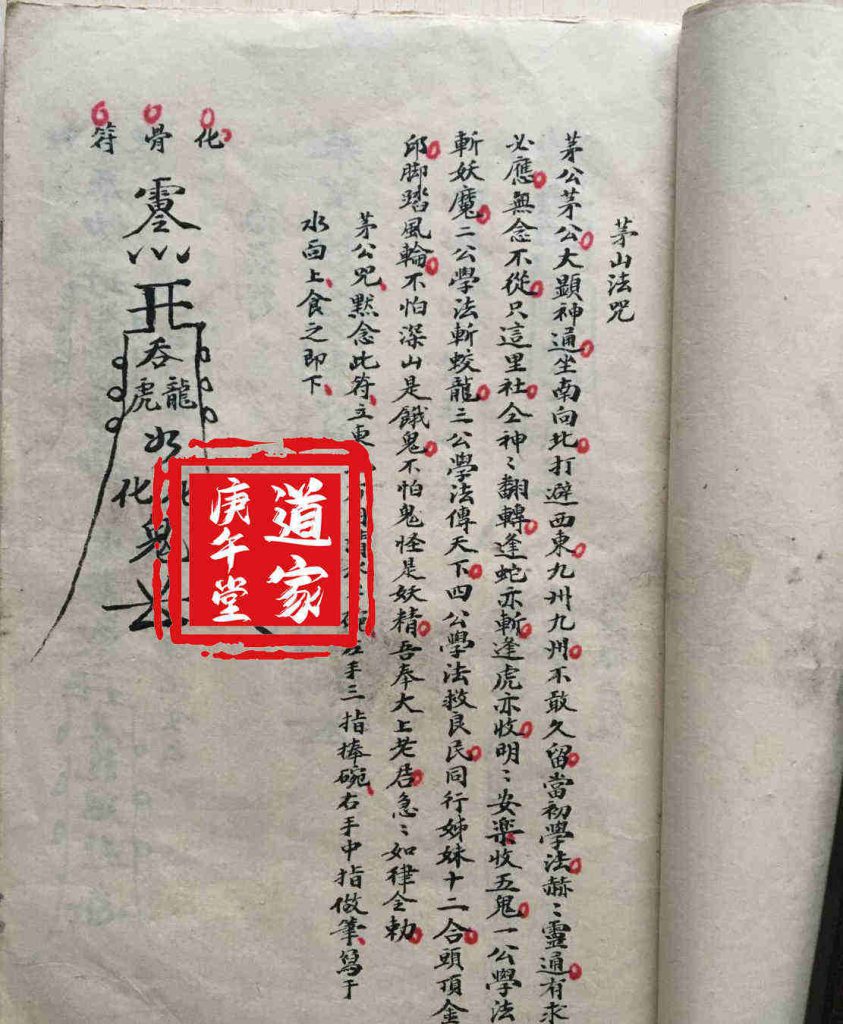 茅山法咒
茅公茅公大顕神通坐南向北打避西東九州九州不敢久留當初學法赫〻靈通有求
必應無念不從只這里社仝神〻翻轉逢蛇亦斬逢虎亦收明〻安楽收五鬼一公學法
斬妖魔二公學法斬蛟龍三公學法傳天下四公學法救良民同行姊妹十二合頭頂金
邱脚踏風輪不怕深山是餓鬼不怕鬼怪是妖精吾奉大上老君急〻如律令勅
茅公咒默念此符立東碗左手三指捧碗右手中指做筆寫于
水面上食之即下
化骨符
吞
龍虎
化
鬼
道家
庚午堂